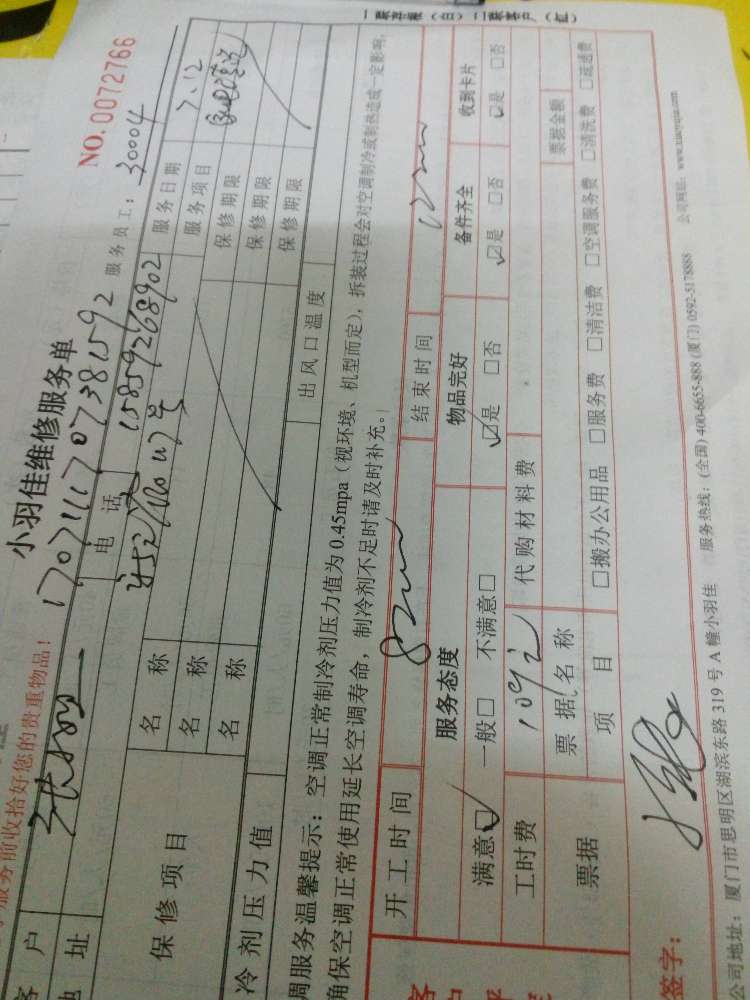 一联存根（白）二联客户（红）
NO.0072766
小羽佳维修服务单
服务前收拾好您的贵重物品！
17071117073815 92
服务员工：30004
客户
电话
15859268902
服务日期
7.12
地址
服务项目
保修项目
名称
保修期限
名称
保修期限
名称
保修期限
冷剂压力值
出风口温度
调服务温馨提示：空调正常制冷剂压力值为0.45mpa（视环境、机型而定），拆装过程会对空调制冷或制热造成一定影响，
确保空调正常使用延长空调寿命，制冷剂不足时请及时补充。
开工时间
结束时间
服务态度
物品完好
备件齐全
收到卡片
满意☑ 一般□ 不满意□
☑是 □否
☑是 □否
☑是 □否
工时费
109元
代购材料费
票据
票据名称
票据金额
项目
□搬办公用品 □服务费 □清洁费 □空调服务费 □清洗费 □疏通费
签字：
公司地址：厦门市思明区湖滨东路319号A幢小羽佳 服务热线：(全国)400-6655-888 (厦门)0592-5178888 公司网址：www.xiaoyujia.com